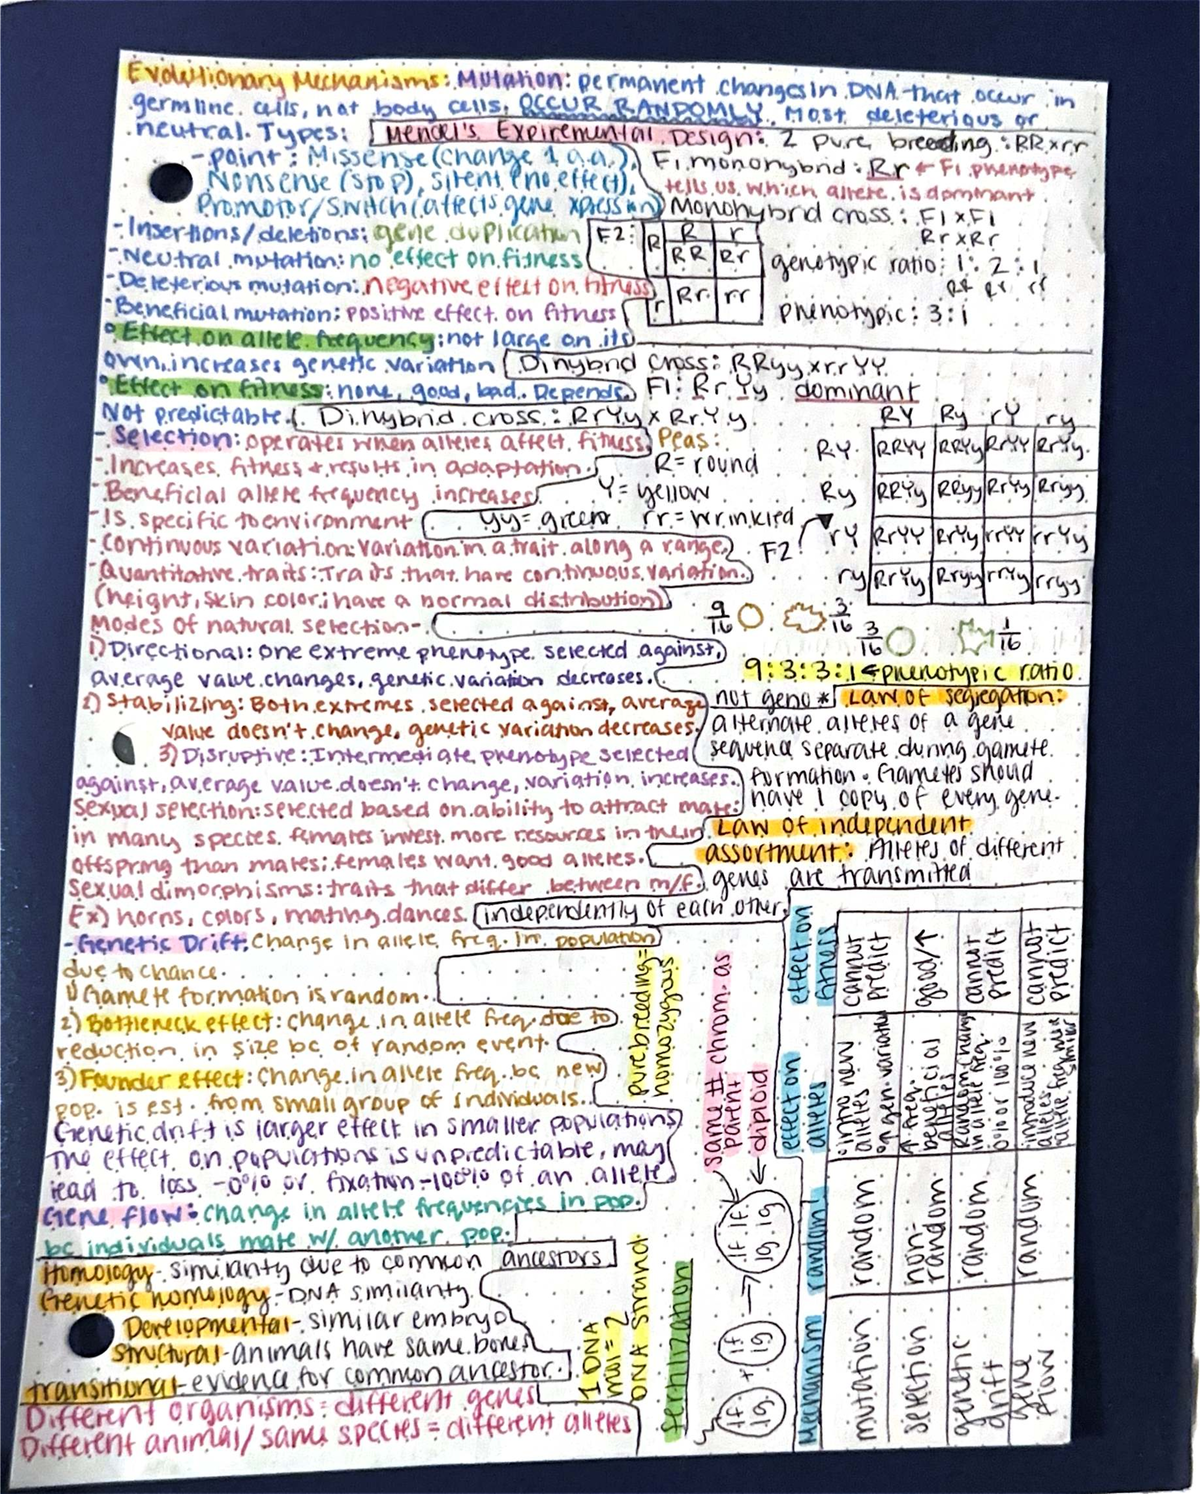 Evolutionary Mechanisms: Mutation: permanent changes in DNA that occur in
germline cells, not body cells. OCCUR RANDOMLY. Most deleterious or
neutral. Types:
- point: Missense (change 1 a.a.),
Nonsense (stop), silent (no effect),
Promotor/switch (affects gene xpression)
- Insertions/deletions: gene duplication
- Neutral mutation: no effect on fitness
- Deleterious mutation: negative effect on fitness
- Beneficial mutation: positive effect on fitness
• Effect on allele frequency: not large on its
own, increases genetic variation
• Effect on fitness: none, good, bad. Depends.
Not predictable.
- Selection: operates when alleles affect fitness
- Increases fitness + results in adaptation.
- Beneficial allele frequency increases
- Is specific to environment
- Continuous variation: variation in a trait along a range.
- Quantitative traits: Traits that have continuous variation.
(height, skin color; have a normal distribution)
Modes of natural selection-
1) Directional: one extreme phenotype selected against,
average value changes, genetic variation decreases.
2) Stabilizing: Both extremes selected against, average
value doesn't change, genetic variation decreases.
3) Disruptive: Intermediate phenotype selected
against, average value doesn't change, variation increases.
Sexual selection: selected based on ability to attract mate:
in many species females invest more resources in their
offspring than males; females want good alleles.
Sexual dimorphisms: traits that differ between m/f.
Ex) horns, colors, mating dances.
- Genetic Drift: Change in allele freq. in population
due to chance.
1) Gamete formation is random.
2) Bottleneck effect: change in allele freq. due to
reduction in size bc of random event.
3) Founder effect: change in allele freq. bc new
pop. is est. from small group of individuals.
Genetic drift is larger effect in smaller populations
The effect on populations is unpredictable, may
lead to loss -0% or fixation -100% of an allele
Gene flow: change in allele frequencies in pop.
bc individuals mate w/ another pop.
Homology- similarity due to common ancestors
Genetic homology- DNA similarity
Developmental- similar embryo
structural- animals have same bones
transitional- evidence for common ancestor.
Different organisms = different genes
Different animal/same species = different alleles
Mendel's Expiremental Design: 2 pure breeding: RR x rr
F1 monohybrid: Rr ← F1 phenotype
tells us which allele is dominant
Monohybrid cross: F1 x F1
Rr x Rr
F2: R r
R RR Rr
r Rr rr
genotypic ratio: 1 : 2 : 1
RR Rr rr
phenotypic: 3:1
Dihybrid cross: RRyy x rrYY
F1: RrYy dominant
Dihybrid cross: RrYy x RrYy
Peas:
R = round
Y = yellow
yy = green rr = wrinkled
F2
RY Ry rY ry
RY RRYY RRYy RrYY RrYy
Ry RRYy RRyy RrYy Rryy
rY RrYY RrYy rrYY rrYy
ry RrYy Rryy rrYy rryy
9/16 3/16
3/16 1/16
9:3:3:1 ← phenotypic ratio
not geno *
Law of segregation:
alternate alleles of a gene
sequence separate during gamete
formation. Gametes should
have 1 copy of every gene.
Law of independent
assortment: Alleles of different
genes are transmitted
independently of each other
pure breeding =
homozygous
same # chrom. as
parent
diploid
1F 1F
1g 1g
1F
1g
+
1F
1g
fertilization
1 DNA
mol = 2
DNA strand
Mechanism random? effect on alleles effect on fitness
mutation random intro new alleles ↑ gen. variation cannot predict
selection non-random ↑ freq. beneficial alleles good/↑
genetic drift random Random change in allele freq. 0% or 100% cannot predict
gene flow random introduce new alleles, allele freq. more similar cannot predict